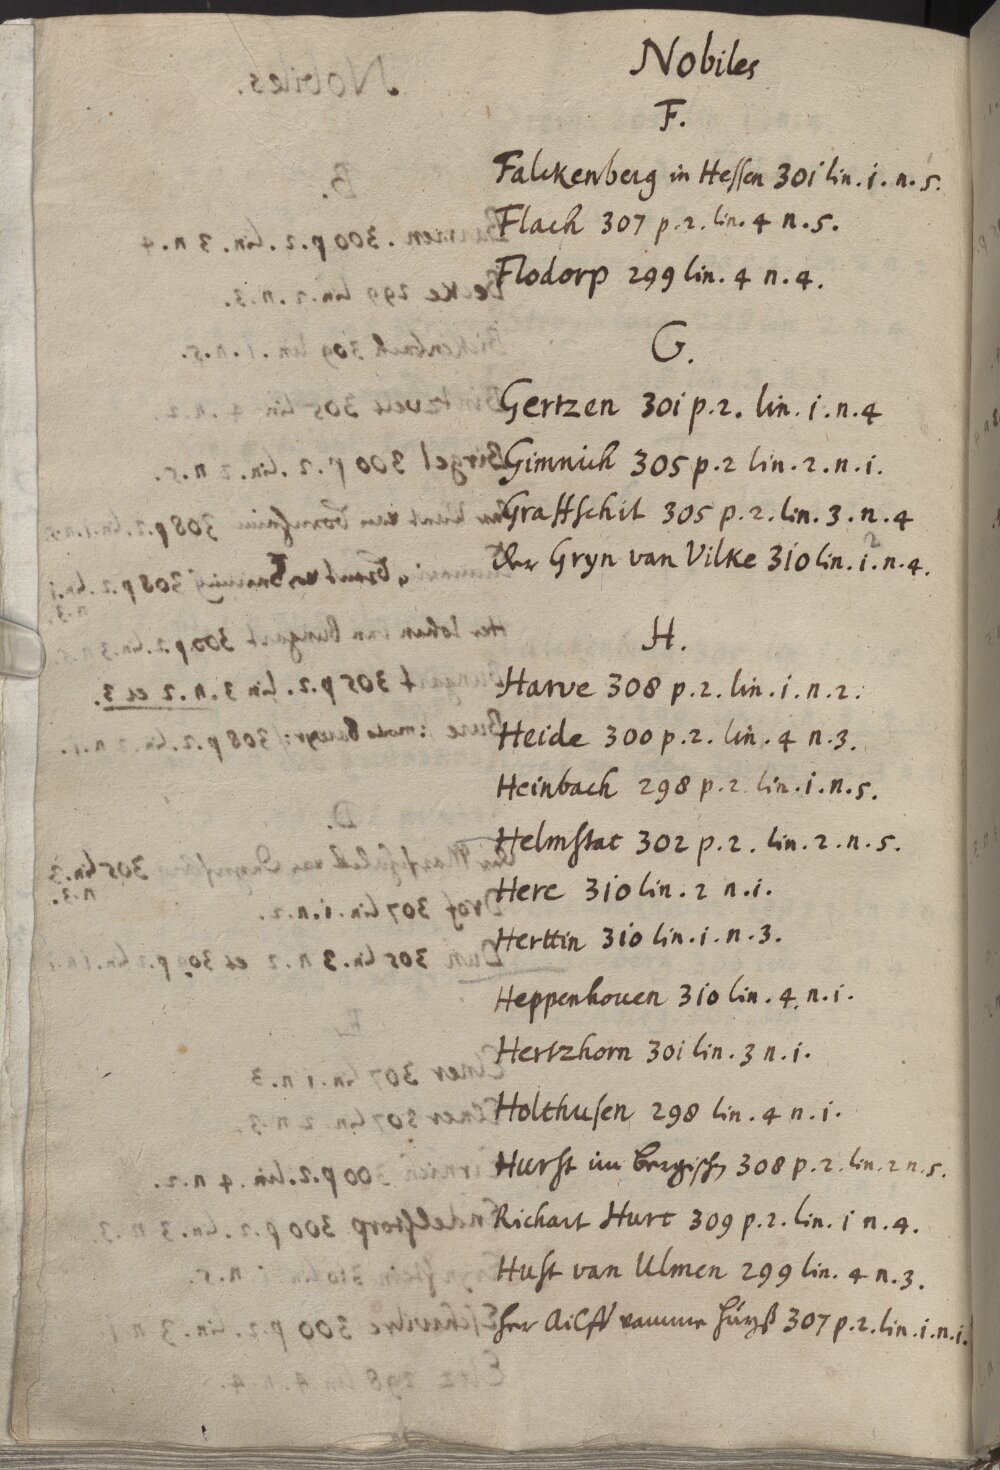 Nobiles
F.
Falckenberg in Hessen 301 lin. i. n. 5.
Flach 307 p. 2. lin. 4 n. 5.
Flodorp 299 lin. 4 n. 4.
G.
Gertzen 301 p. 2. lin. i. n. 4
Gimnich 305 p. 2 lin. 2. n. i.
Graffschit 305 p. 2. lin. 3. n. 4
der Gryn van Vilke 310 lin. i. n. 4.
H.
Harve 308 p. 2. lin. i. n. 2.
Heide 300 p. 2. lin. 4 n. 3.
Heinbach 298 p. 2 lin. i. n. 5.
Helmstat 302 p. 2. lin. 2. n. 5.
Here 310 lin. 2 n. i.
Herttin 310 lin. i. n. 3.
Heppenhouen 310 lin. 4. n. i.
Hertzhorn 301 lin. 3 n. i.
Holthusen 298 lin. 4 n. i.
Hurst im bergisch 308 p. 2. lin. 2 n. 5.
Richart Hurt 309 p. 2. lin. i n. 4.
Hust van Ulmen 299 lin. 4 n. 3.
her Ailff vamme 307 p. 2. lin. i. n. i.